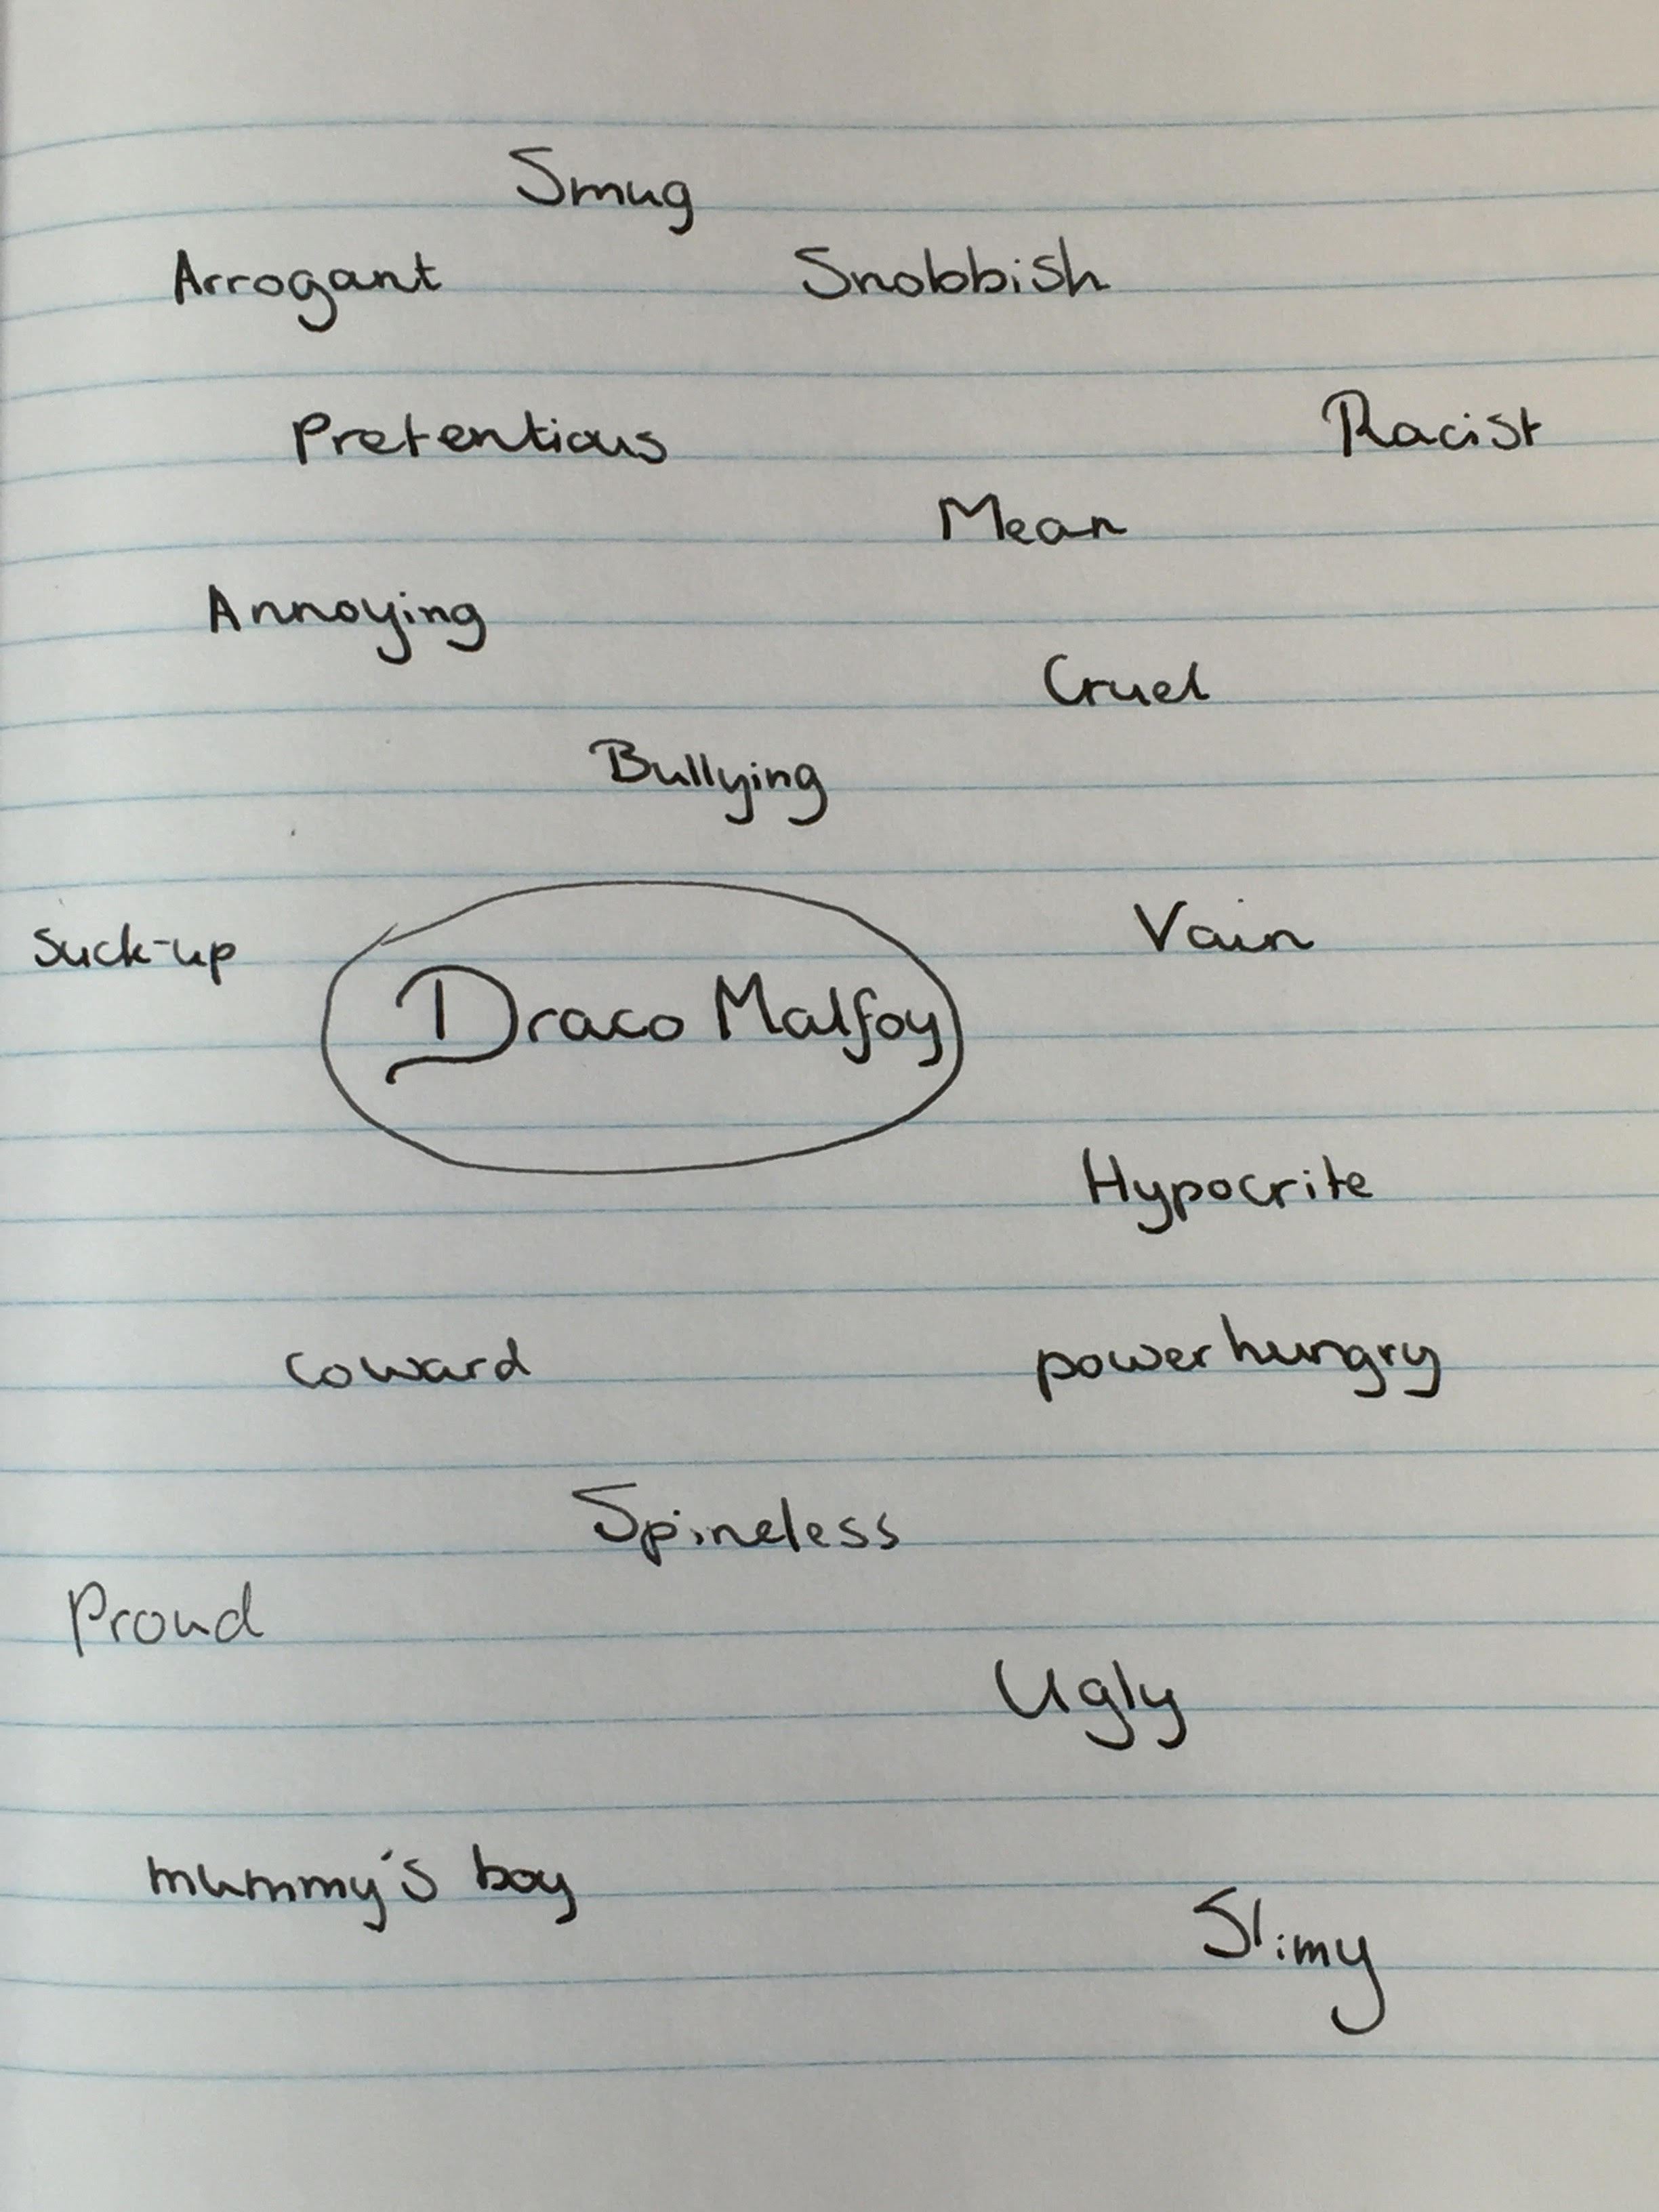 Smug
Arrogant
Snobbish
Pretentious
Racist
Mean
Annoying
Cruel
Bullying
Suck-up
Vain
Draco Malfoy
Hypocrite
Coward
powerhungry
Spineless
Proud
Ugly
mummy's boy
Slimy